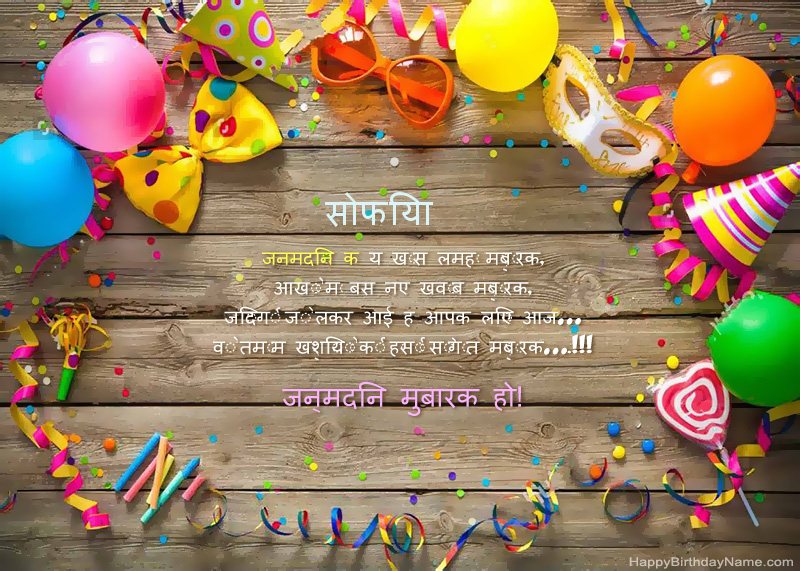 सोफिया
जन्मदिन के ये खास लम्हें मुबारक,
आँखों में बसे नए ख्वाब मुबारक,
जिंदगी जो लेकर आई है आपके लिए आज...
वो तमाम खुशियों की हसीं सौगात मुबारक...!!!
जन्मदिन मुबारक हो!
HappyBirthdayName.com